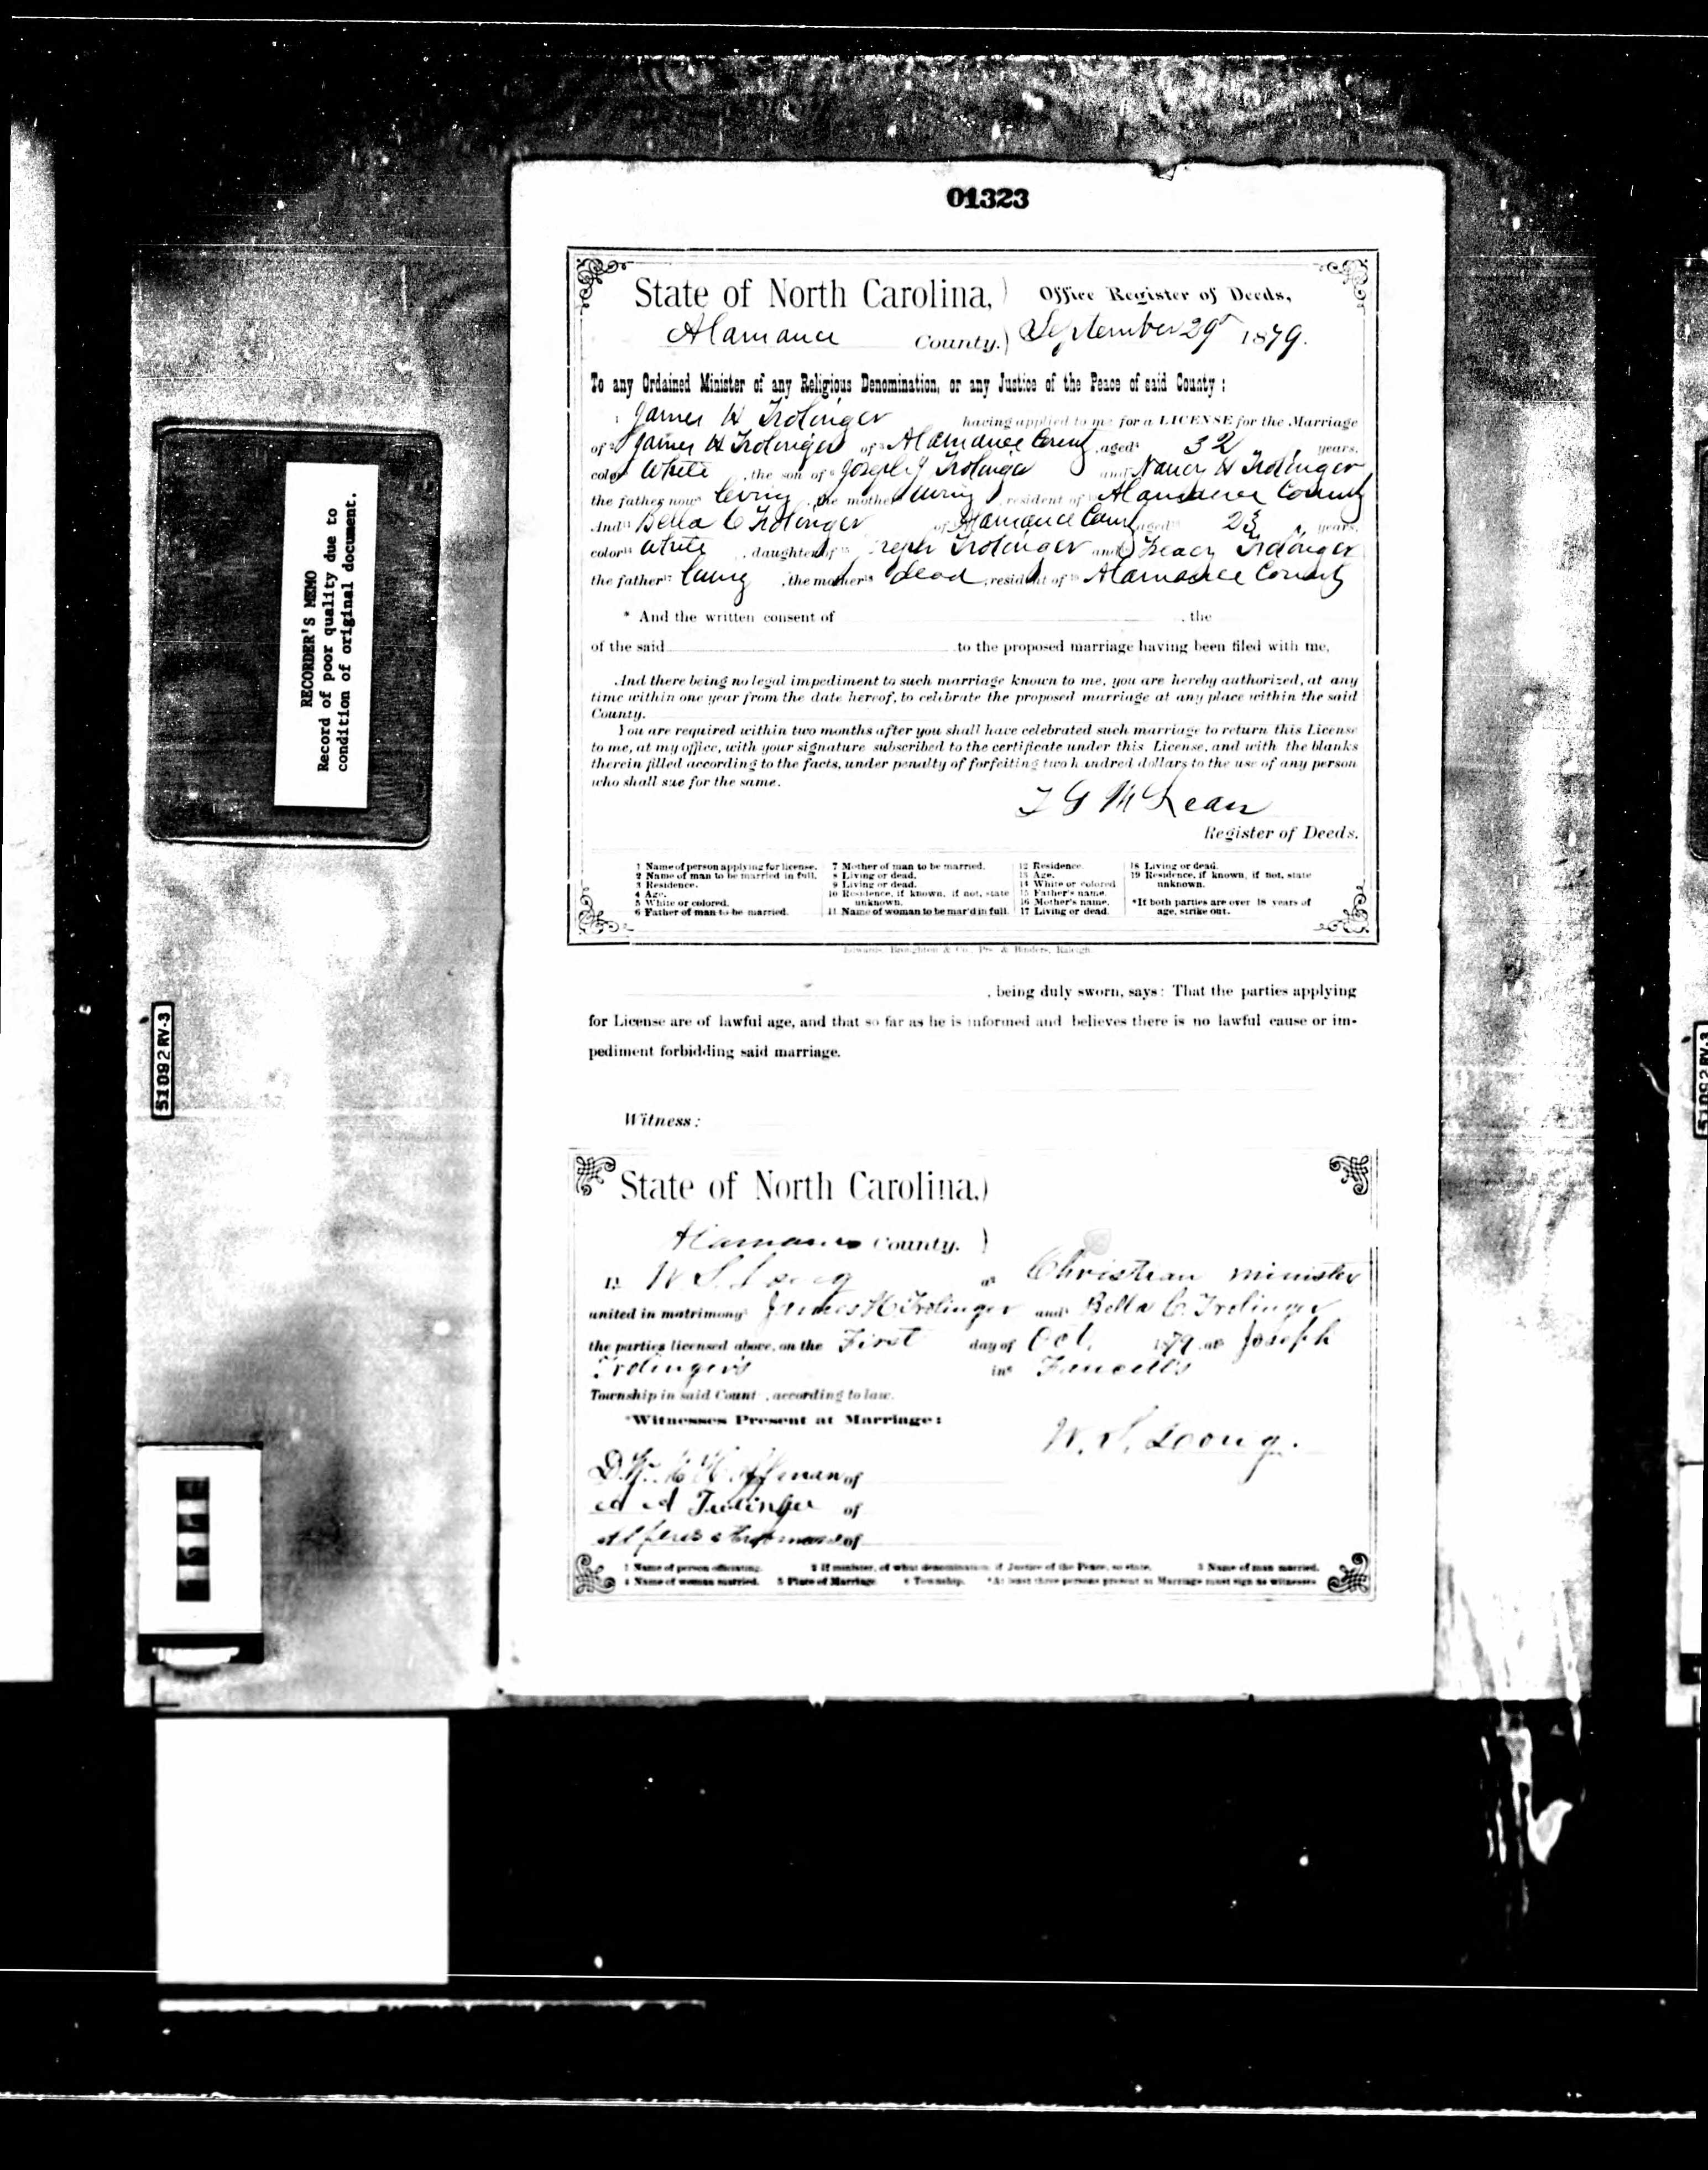 01323
State of North Carolina, Office Register of Deeds,
Alamance County. September 29th 1879.
To any Ordained Minister of any Religious Denomination, or any Justice of the Peace of said County:
James H Trolinger having applied to me for a LICENSE for the Marriage
of James H Trolinger of Alamance County aged 32 years,
color White, the son of Joseph J Trolinger and Nancy H Trolinger
the father now living, the mother living, resident of Alamance County
And Bella C Trolinger of Alamance County aged 23 years,
color White, daughter of Joseph Trolinger and Trolinger
the father living, the mother dead, resident of Alamance County
* And the written consent of , the
of the said to the proposed marriage having been filed with me,
And there being no legal impediment to such marriage known to me, you are hereby authorized, at any
time within one year from the date hereof, to celebrate the proposed marriage at any place within the said
County.
You are required within two months after you shall have celebrated such marriage to return this License
to me, at my office, with your signature subscribed to the certificate under this License, and with the blanks
therein filled according to the facts, under penalty of forfeiting two hundred dollars to the use of any person
who shall sue for the same.
T G McLean
Register of Deeds.
1 Name of person applying for license.
2 Name of man to be married in full.
3 Residence.
4 Age.
5 White or colored.
6 Father of man to be married.
7 Mother of man to be married.
8 Living or dead.
9 Living or dead.
10 Residence, if known, if not, state
unknown.
11 Name of woman to be mar'd in full.
12 Residence.
13 Age.
14 White or colored
15 Father's name.
16 Mother's name.
17 Living or dead.
18 Living or dead.
19 Residence, if known, if not, state
unknown.
*If both parties are over 18 years of
age, strike out.
Edwards, Broughton & Co., Prs & Binders, Raleigh.
, being duly sworn, says: That the parties applying
for License are of lawful age, and that so far as he is informed and believes there is no lawful cause or im-
pediment forbidding said marriage.
Witness:
State of North Carolina,
Alamance County.
I, W S Long a Christian minister
united in matrimony James H Trolinger and Bella C. Trolinger
the parties licensed above, on the First day of Oct. 1879, at Joseph
Trolinger's in Faucetts
Township in said County, according to law.
*Witnesses Present at Marriage:
W. S. Long.
Hoffman of
A A Trolinger of
of
1 Name of person officiating. 2 If minister, of what denomination, if Justice of the Peace, so state. 3 Name of man married.
4 Name of woman married. 5 Place of Marriage. 6 Township. *At least three persons present at Marriage must sign as witnesses
RECORDER'S MEMO
Record of poor quality due to
condition of original document.
51092 RV-3
51092 RV-3